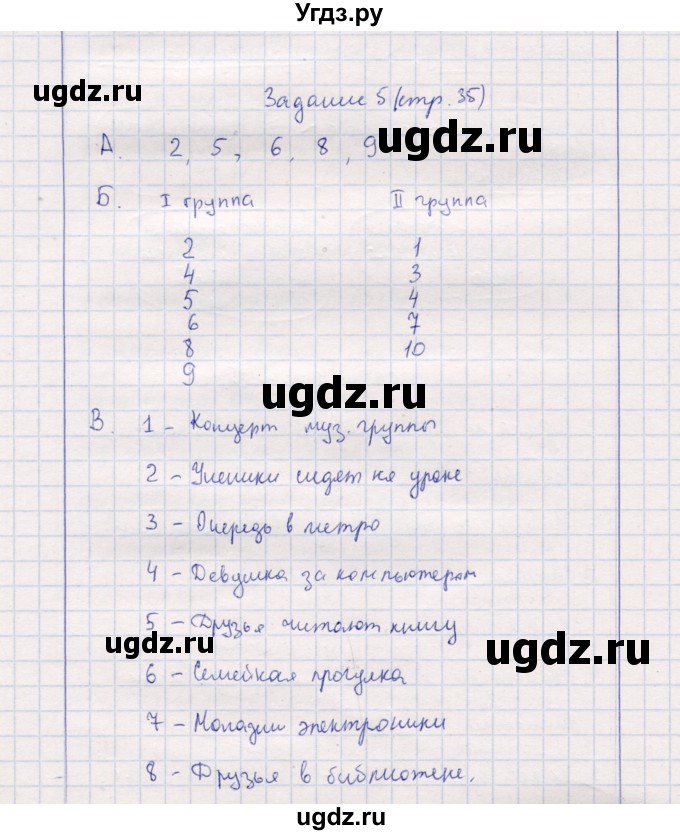 Угдз.ру
ugdz.ru
Задание 5 (стр. 35)
А. 2, 5, 6, 8, 9
ugdz.ru
Б. I группа II группа
2 1
4 3
5 4
6 7
8 10
9
ugdz.ru
В. 1 - Концерт муз. группы
2 - Ученики сидят на уроке
3 - Очередь в метро
4 - Девушка за компьютерам
5 - Друзья читают книгу
ugdz.ru
ugdz.ru
6 - Семейная прогулка
7 - Молодии электроники
8 - Друзья в библиотеке.
ugdz.ru